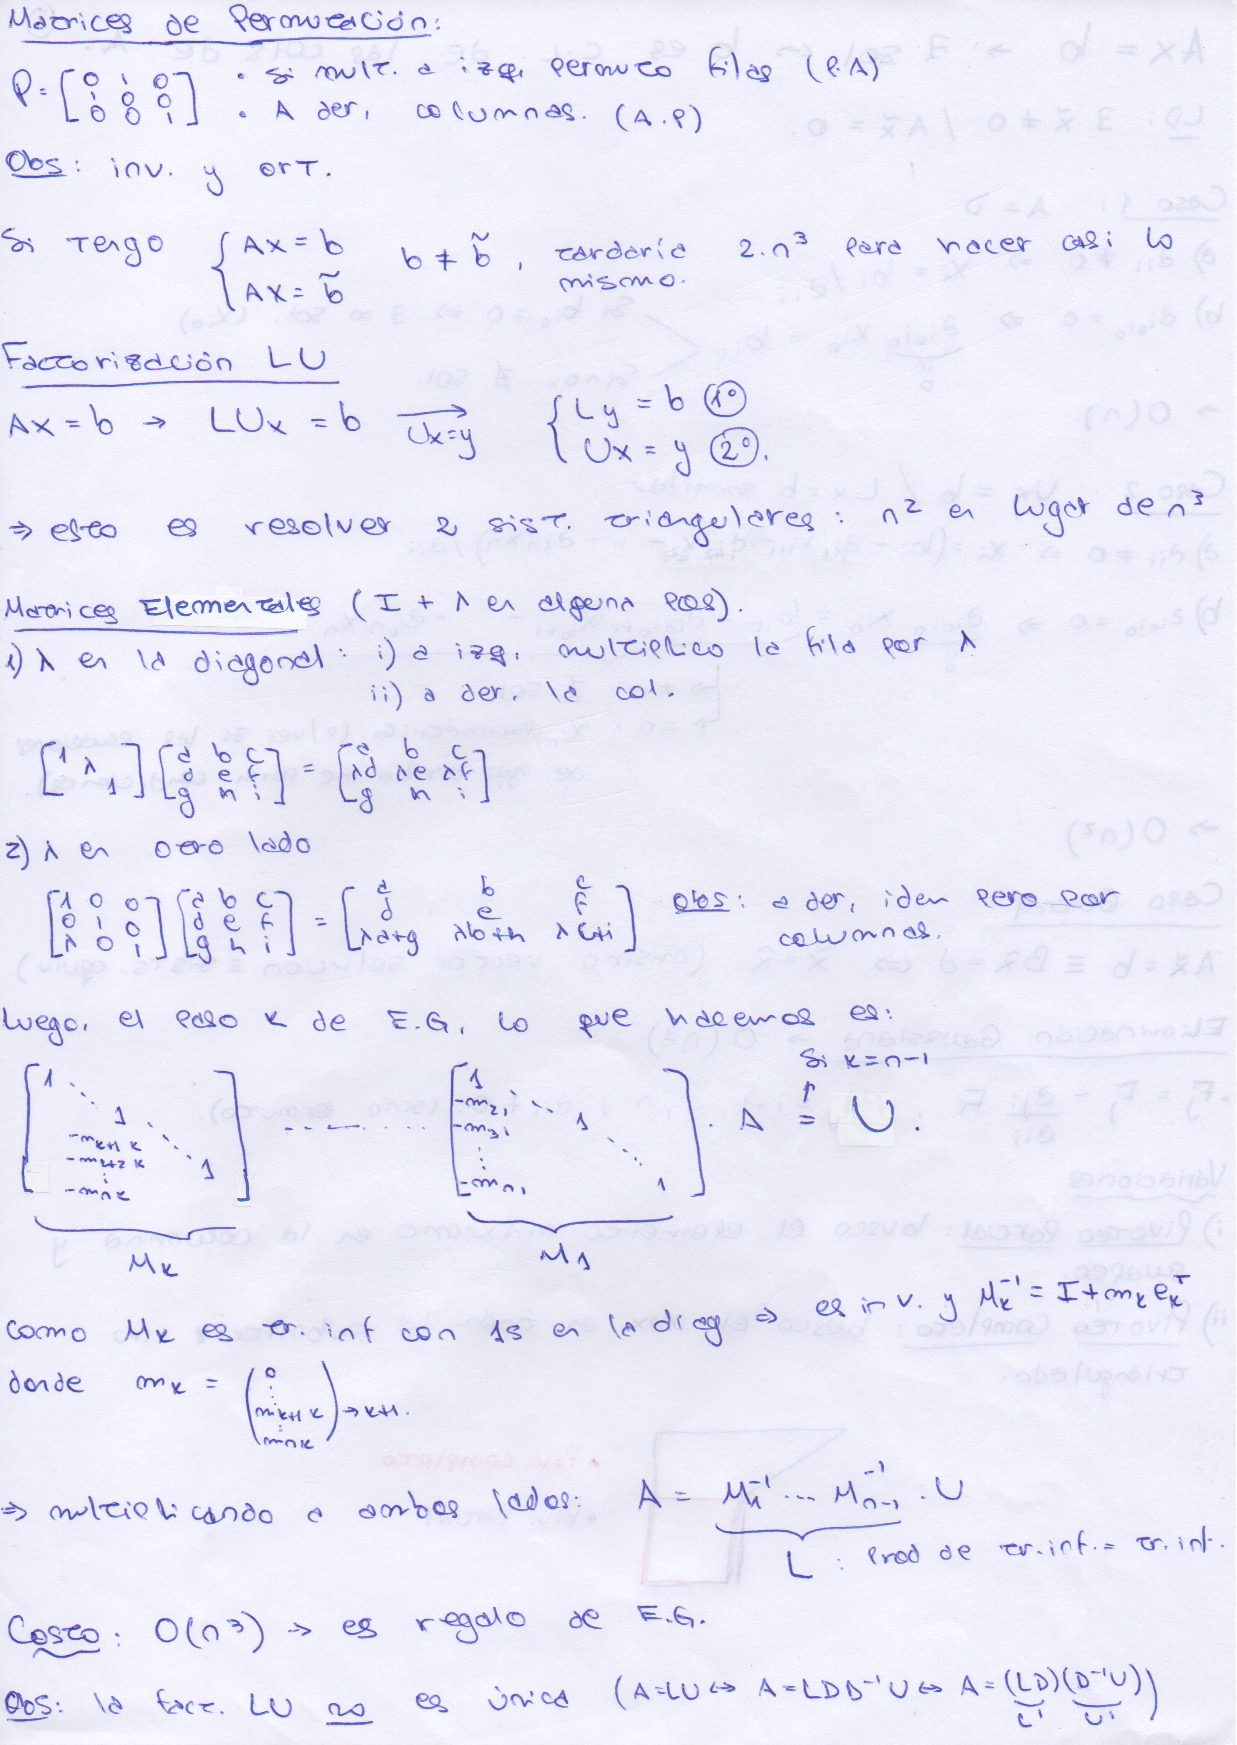 Matrices de Permutación:
P = [0 1 0; 1 0 0; 0 0 1] • Si mult. a izq. permuto filas (P.A)
• A der, columnas. (A.P)
Obs: inv. y ort.
Si tengo { Ax = b
Ax = b̃
b ≠ b̃, tardaría 2.n³ para hacer casi lo
mismo.
Factorización LU
Ax = b → LUx = b →(Ux=y) { Ly = b 1º
Ux = y 2º.
⇒ esto es resolver 2 sist. triangulares: n² en lugar de n³
Matrices Elementales (I + λ en alguna pos).
1) λ en la diagonal: i) a izq. multiplico la fila por λ
ii) a der. la col.
[1 λ 1] [a b c; d e f; g h i] = [a b c; λd λe λf; g h i]
2) λ en otro lado
[1 0 0; 0 1 0; λ 0 1] [a b c; d e f; g h i] = [a b c; d e f; λa+g λb+h λc+i] Obs: a der, idem pero por
columnas.
Luego, el paso k de E.G, lo que hacemos es:
Si k = n-1
[1 ⋱ 1 -mk+1 k -mk+2 k ⋮ -mnk ⋱ 1] ........ [1 -m21 -m31 ⋮ -mn1 ⋱ 1 ⋱ 1] . A = U.
Mk M1
Como Mk es tr. inf con 1s en la diag ⇒ es inv. y Mk⁻¹ = I + mk ekᵀ
donde mk = (0 ⋮ mk+1 k ⋮ mnk) → k+1.
⇒ multiplicando a ambos lados: A = M1⁻¹ ... Mn-1⁻¹ . U
L : Prod de tr. inf. = tr. inf.
Costo: O(n³) → es regalo de E.G.
Obs: la fact. LU no es única (A=LU ↔ A = LDD⁻¹U ↔ A = (LD)(D⁻¹U))
L' U'